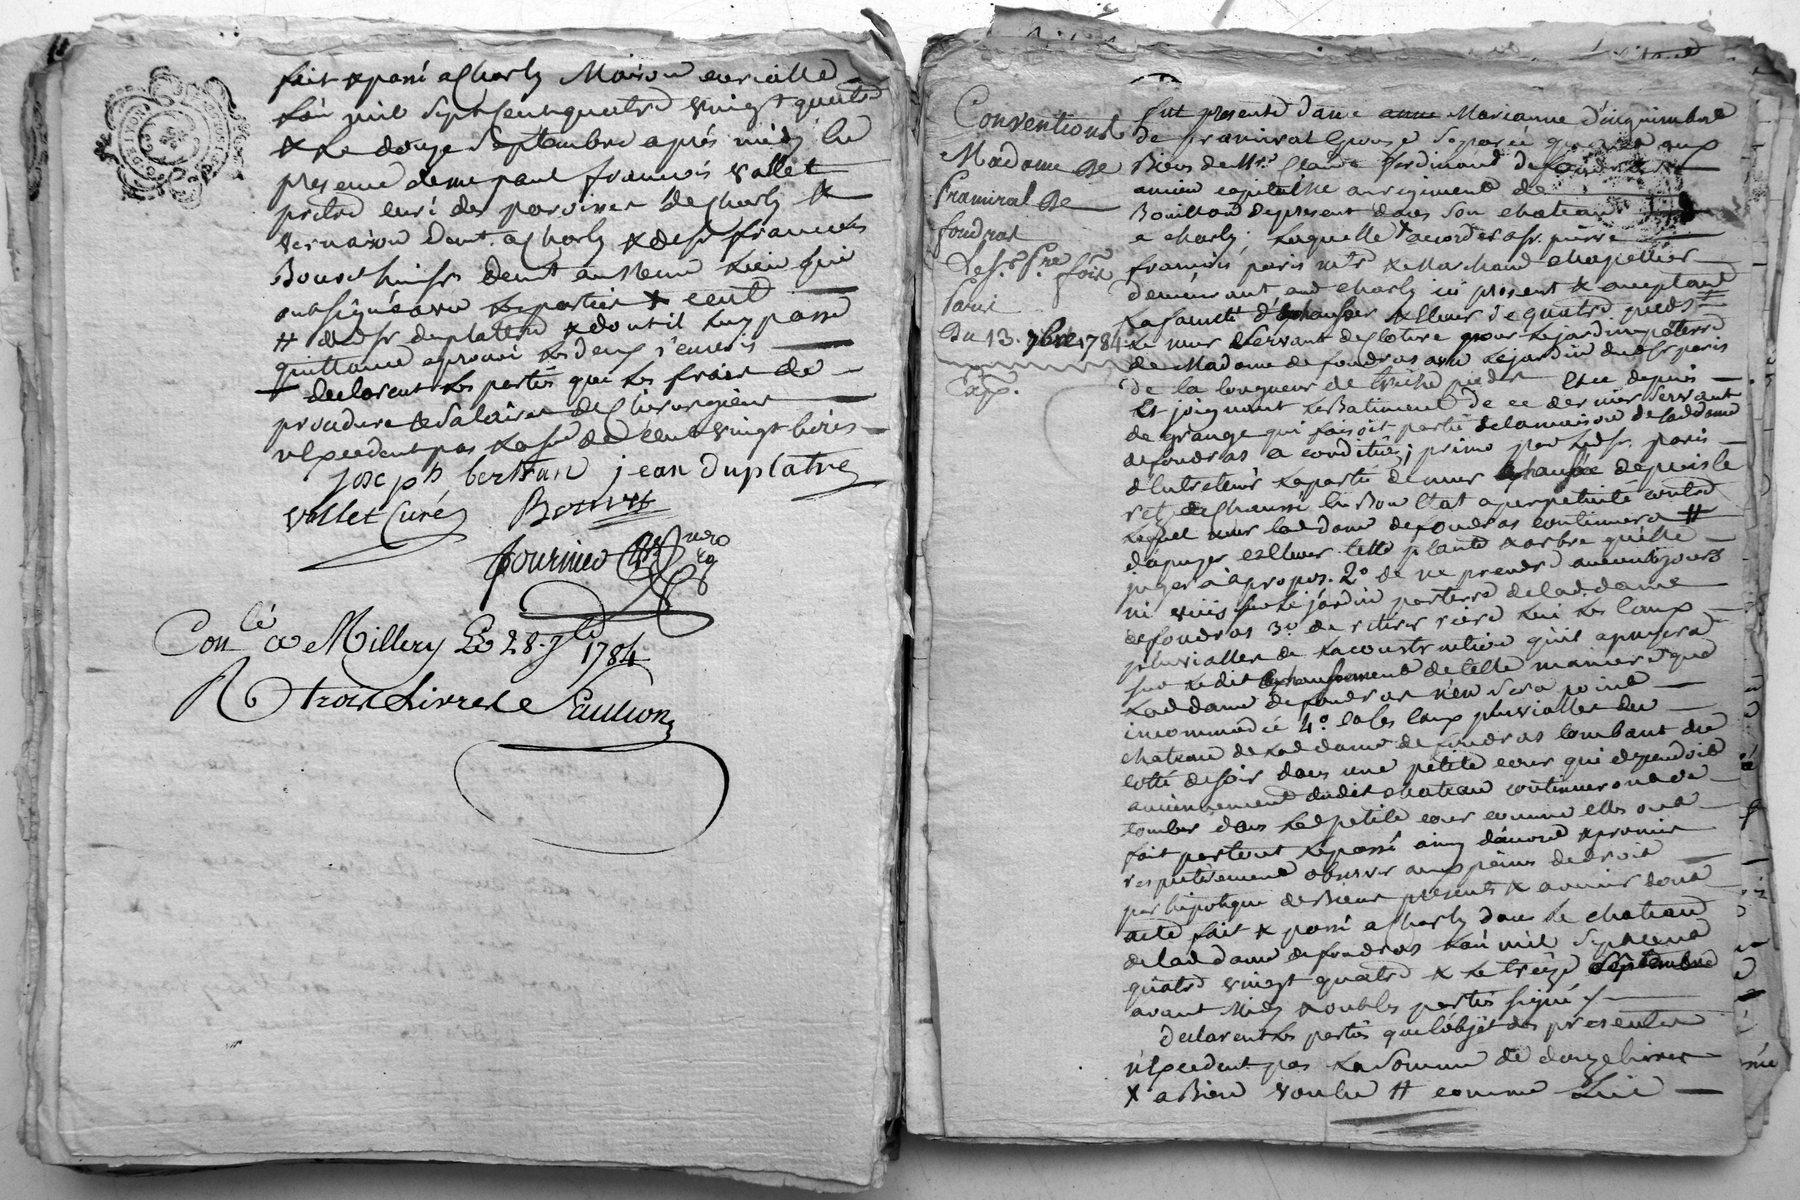 fait & passé a Charly Maison curialle
L'an mil sept cent quatre vingt quatre
& Le douze Septembre après midy En
presence de me paul francois vallet
pretre curé des paroisses de Charly &
vernaison demt. a Charly & de sr francois
Bourchenisse demt au meme Lieu qui
ont signé avec Les parties & cent
# dudsr duplatre & dont il Luy passe
quittance aprouvé Les deux renvois
declarent Les parties que Les frais de
procedure & salaires de Chirurgiens
nExcedent pas La se de cent vingt livres
joseph bertran jean duplatre
vallet Curé
fournier
Conlé a Millery Le 28. 7bre 1784
R trois Livres
Conventions
Madame De
framiral De
foudras
De sr. pre. fois
Paris
Du 13. 7bre 1784
Exp.
fut presente dame Marianne d'inguimbre
de framiral Epouse Separée quand aux
Biens de Mr. Claude ferdinand de foudras
ancien capitaine au regiment de
Bouillon de present dans son chateau
a charly; Laquelle & accorde a sr. pierre
francois paris mtre & Marchand chapellier
demeurant aud Charly ici present & acceptant
La faculté d'Exhausser & Elever de quatre pieds
Le mur servant de cloture pour Le jardin parterre
de Madame de foudras avec Le jardin dud sr paris
de la longueur de treize pieds Et ce depuis
Et joignant Le Batiment de ce dernier servant
de grange qui faisoit partie de la maison de lad dame
de foudras a condition; primo par Led sr. paris
d'Entretenir La partie de mur Exhaussée depuis le
rez de Chaussé En Bon Etat a perpetuité contre
Lequel mur lad dame de foudras continuera #
d'apuyer & Elever telle plante & arbre qu'Elle
jugera a propos. 2o de ne prendre aucuns jours
ni vuës sur Le jardin parterre de lad. dame
de foudras 3o. de retirer riere Lui Les Eaux
pluvialles de La construction qu'il apuyera
sur Ledit Exhaussement de telle maniere que
Lad dame de foudras n'en sera point
incommodée 4o. Les Eaux pluvialles du
chateau de Lad dame de foudras tombant du
coté de soir dans une petite cour qui dependoit
anciennement dudit chateau continueront de
tomber dans Lad petite cour comme elles ont
fait par Le passé ainsy d'accord & promis
respectivement observer aux peines de droit
par hipoteque de Biens presents & avenir dont
acte fait & passé a Charly dans Le chateau
de lad dame de foudras L'an mil sept cent
quatre vingt quatre & Le treize Septembre
avant Midy & ont les parties signé
declarent Les parties que l'objet des presentes
n'Excedent pas La somme de douze livres
& a Bien voulu # comme Lui